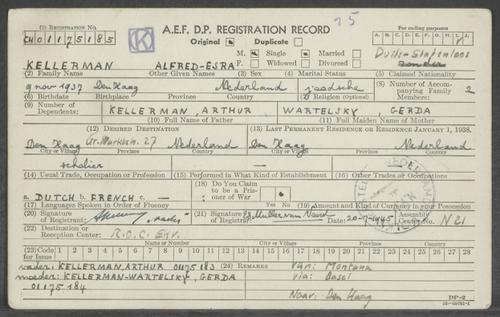 15
(1) REGISTRATION NO.
CH 01175185
K
A.E.F. D.P. REGISTRATION RECORD
Original Duplicate
For coding purposes
A. B. C. D. E. F. G. H. I. J.
M. Single Married
F. Widowed Divorced
Duits-Staatenloos
KELLERMAN ALFRED-ESRA
(2) Family Name Other Given Names (3) Sex (4) Marital Status (5) Claimed Nationality
9 nov 1937 Den Haag Nederland joodsche
(6) Birthdate Birthplace Province Country (7) Religion (Optional) (8) Number of Accompanying Family Members: 2
(9) Number of Dependents: KELLERMAN, ARTHUR WARTELSKY, GERDA
(10) Full Name of Father (11) Full Maiden Name of Mother
(12) DESIRED DESTINATION (13) LAST PERMANENT RESIDENCE OR RESIDENCE JANUARY 1, 1938.
Den Haag Gr. Marktstr. 27 Nederland Den Haag Nederland
City or Village Province Country City or Village Province Country
scholier —
(14) Usual Trade, Occupation or Profession (15) Performed in What Kind of Establishment (16) Other Trades or Occupations
a. DUTCH b. FRENCH c. —
(18) Do You Claim to be a Prisoner of War
(17) Languages Spoken in Order of Fluency Yes No (19) Amount and Kind of Currency in your Possession
(20) Signature of Registrant: (21) Signature of Registrar: Date: 20-7-1945 Assembly Center No. N21
(22) Destination or Reception Center:
Name or Number City or Village Province Country
(23) Code for Issue 1 2 3 4 5 6 7 8 9 10 11 12 13 14 15 16 17 18 19 20 21 22 23 24 25 26 27 28
vader: KELLERMAN, ARTHUR 01175183 (24) REMARKS Van: Montana
moeder: KELLERMAN-WARTELSKY, GERDA via: Basel
01175184 Naar: Den Haag
DP-2